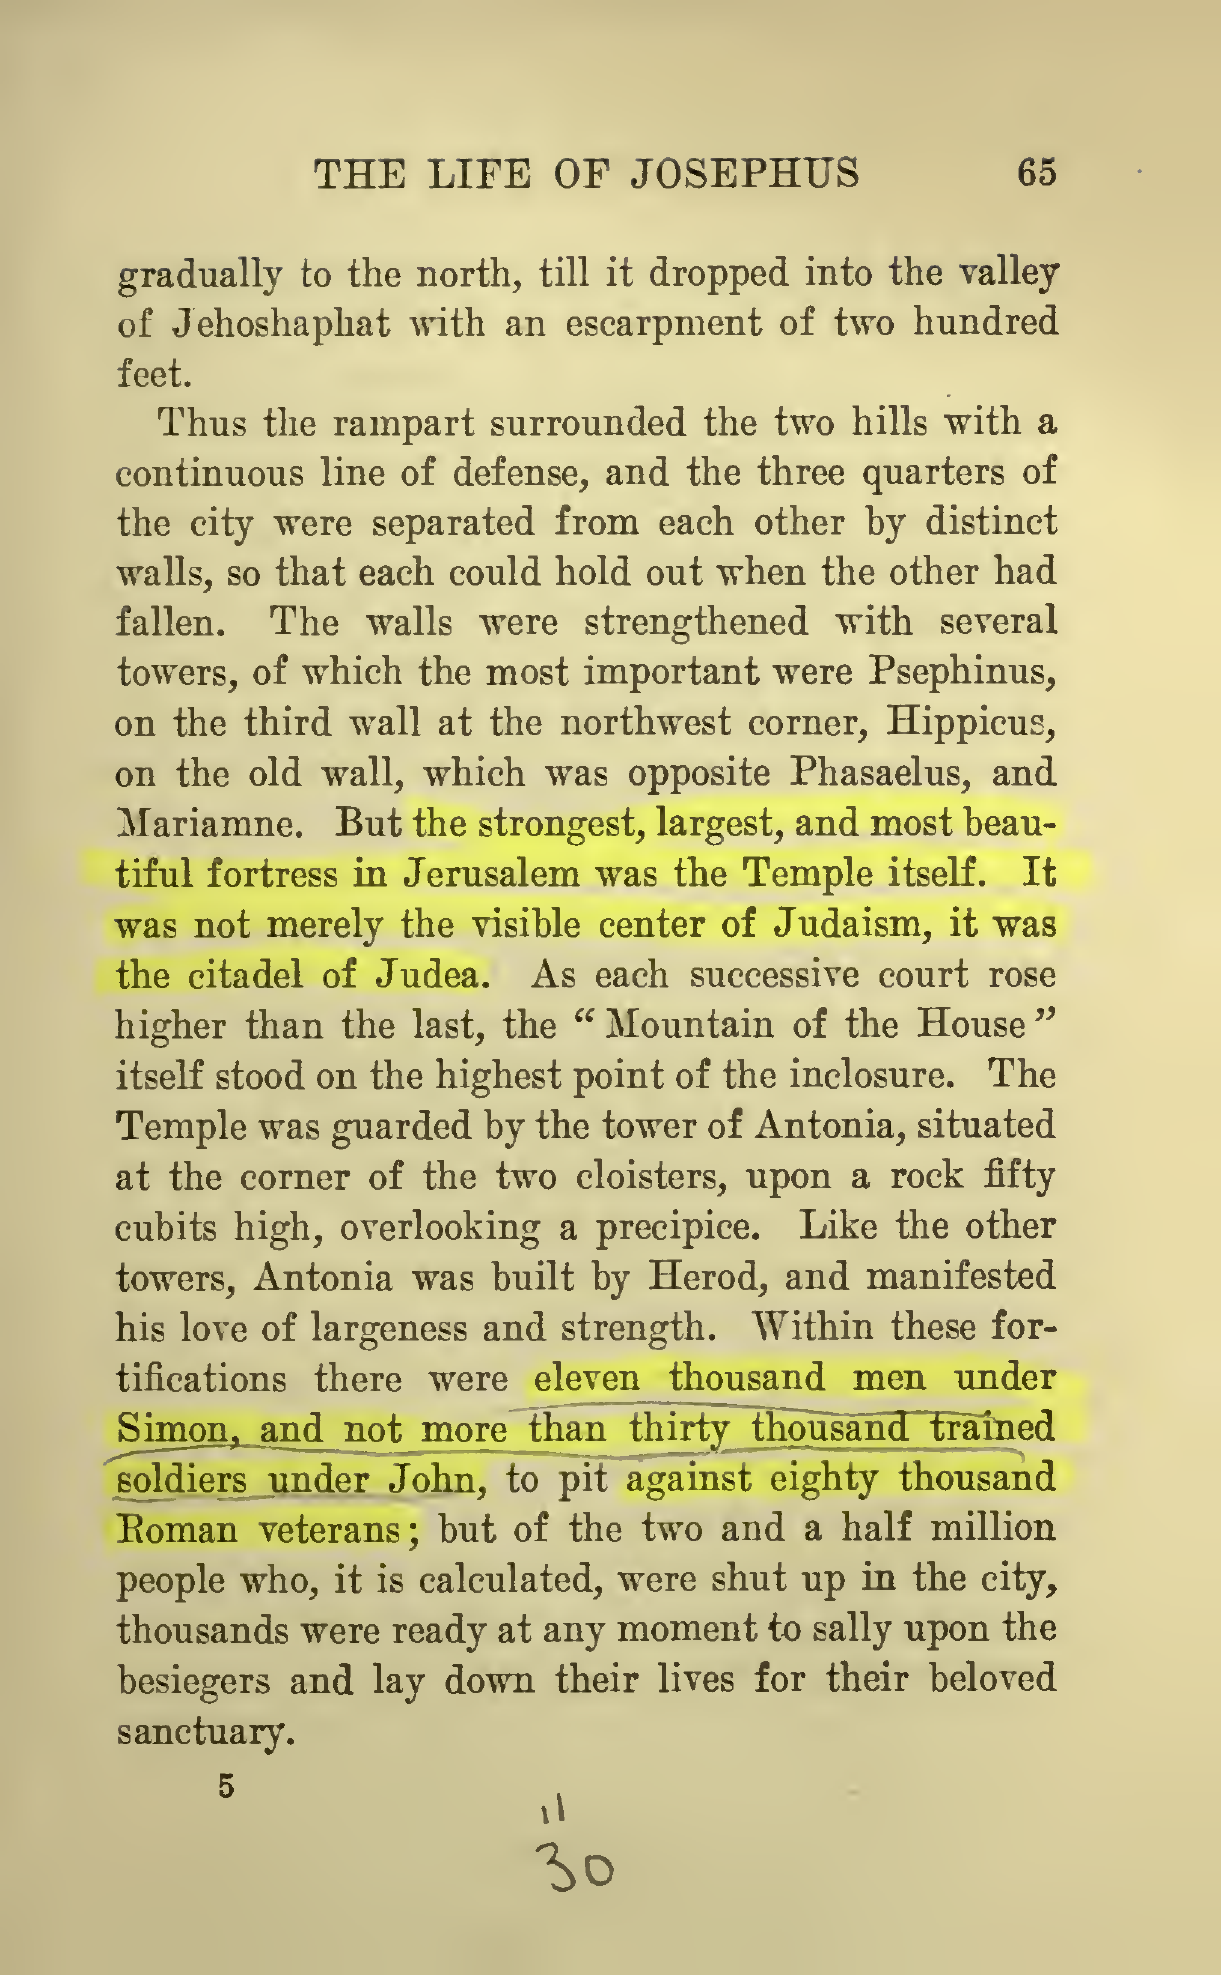 THE LIFE OF JOSEPHUS 65
gradually to the north, till it dropped into the valley
of Jehoshaphat with an escarpment of two hundred
feet.
Thus the rampart surrounded the two hills with a
continuous line of defense, and the three quarters of
the city were separated from each other by distinct
walls, so that each could hold out when the other had
fallen. The walls were strengthened with several
towers, of which the most important were Psephinus,
on the third wall at the northwest corner, Hippicus,
on the old wall, which was opposite Phasaelus, and
Mariamne. But the strongest, largest, and most beau-
tiful fortress in Jerusalem was the Temple itself. It
was not merely the visible center of Judaism, it was
the citadel of Judea. As each successive court rose
higher than the last, the “Mountain of the House”
itself stood on the highest point of the inclosure. The
Temple was guarded by the tower of Antonia, situated
at the corner of the two cloisters, upon a rock fifty
cubits high, overlooking a precipice. Like the other
towers, Antonia was built by Herod, and manifested
his love of largeness and strength. Within these for-
tifications there were eleven thousand men under
Simon, and not more than thirty thousand trained
soldiers under John, to pit against eighty thousand
Roman veterans; but of the two and a half million
people who, it is calculated, were shut up in the city,
thousands were ready at any moment to sally upon the
besiegers and lay down their lives for their beloved
sanctuary.
5
11
30